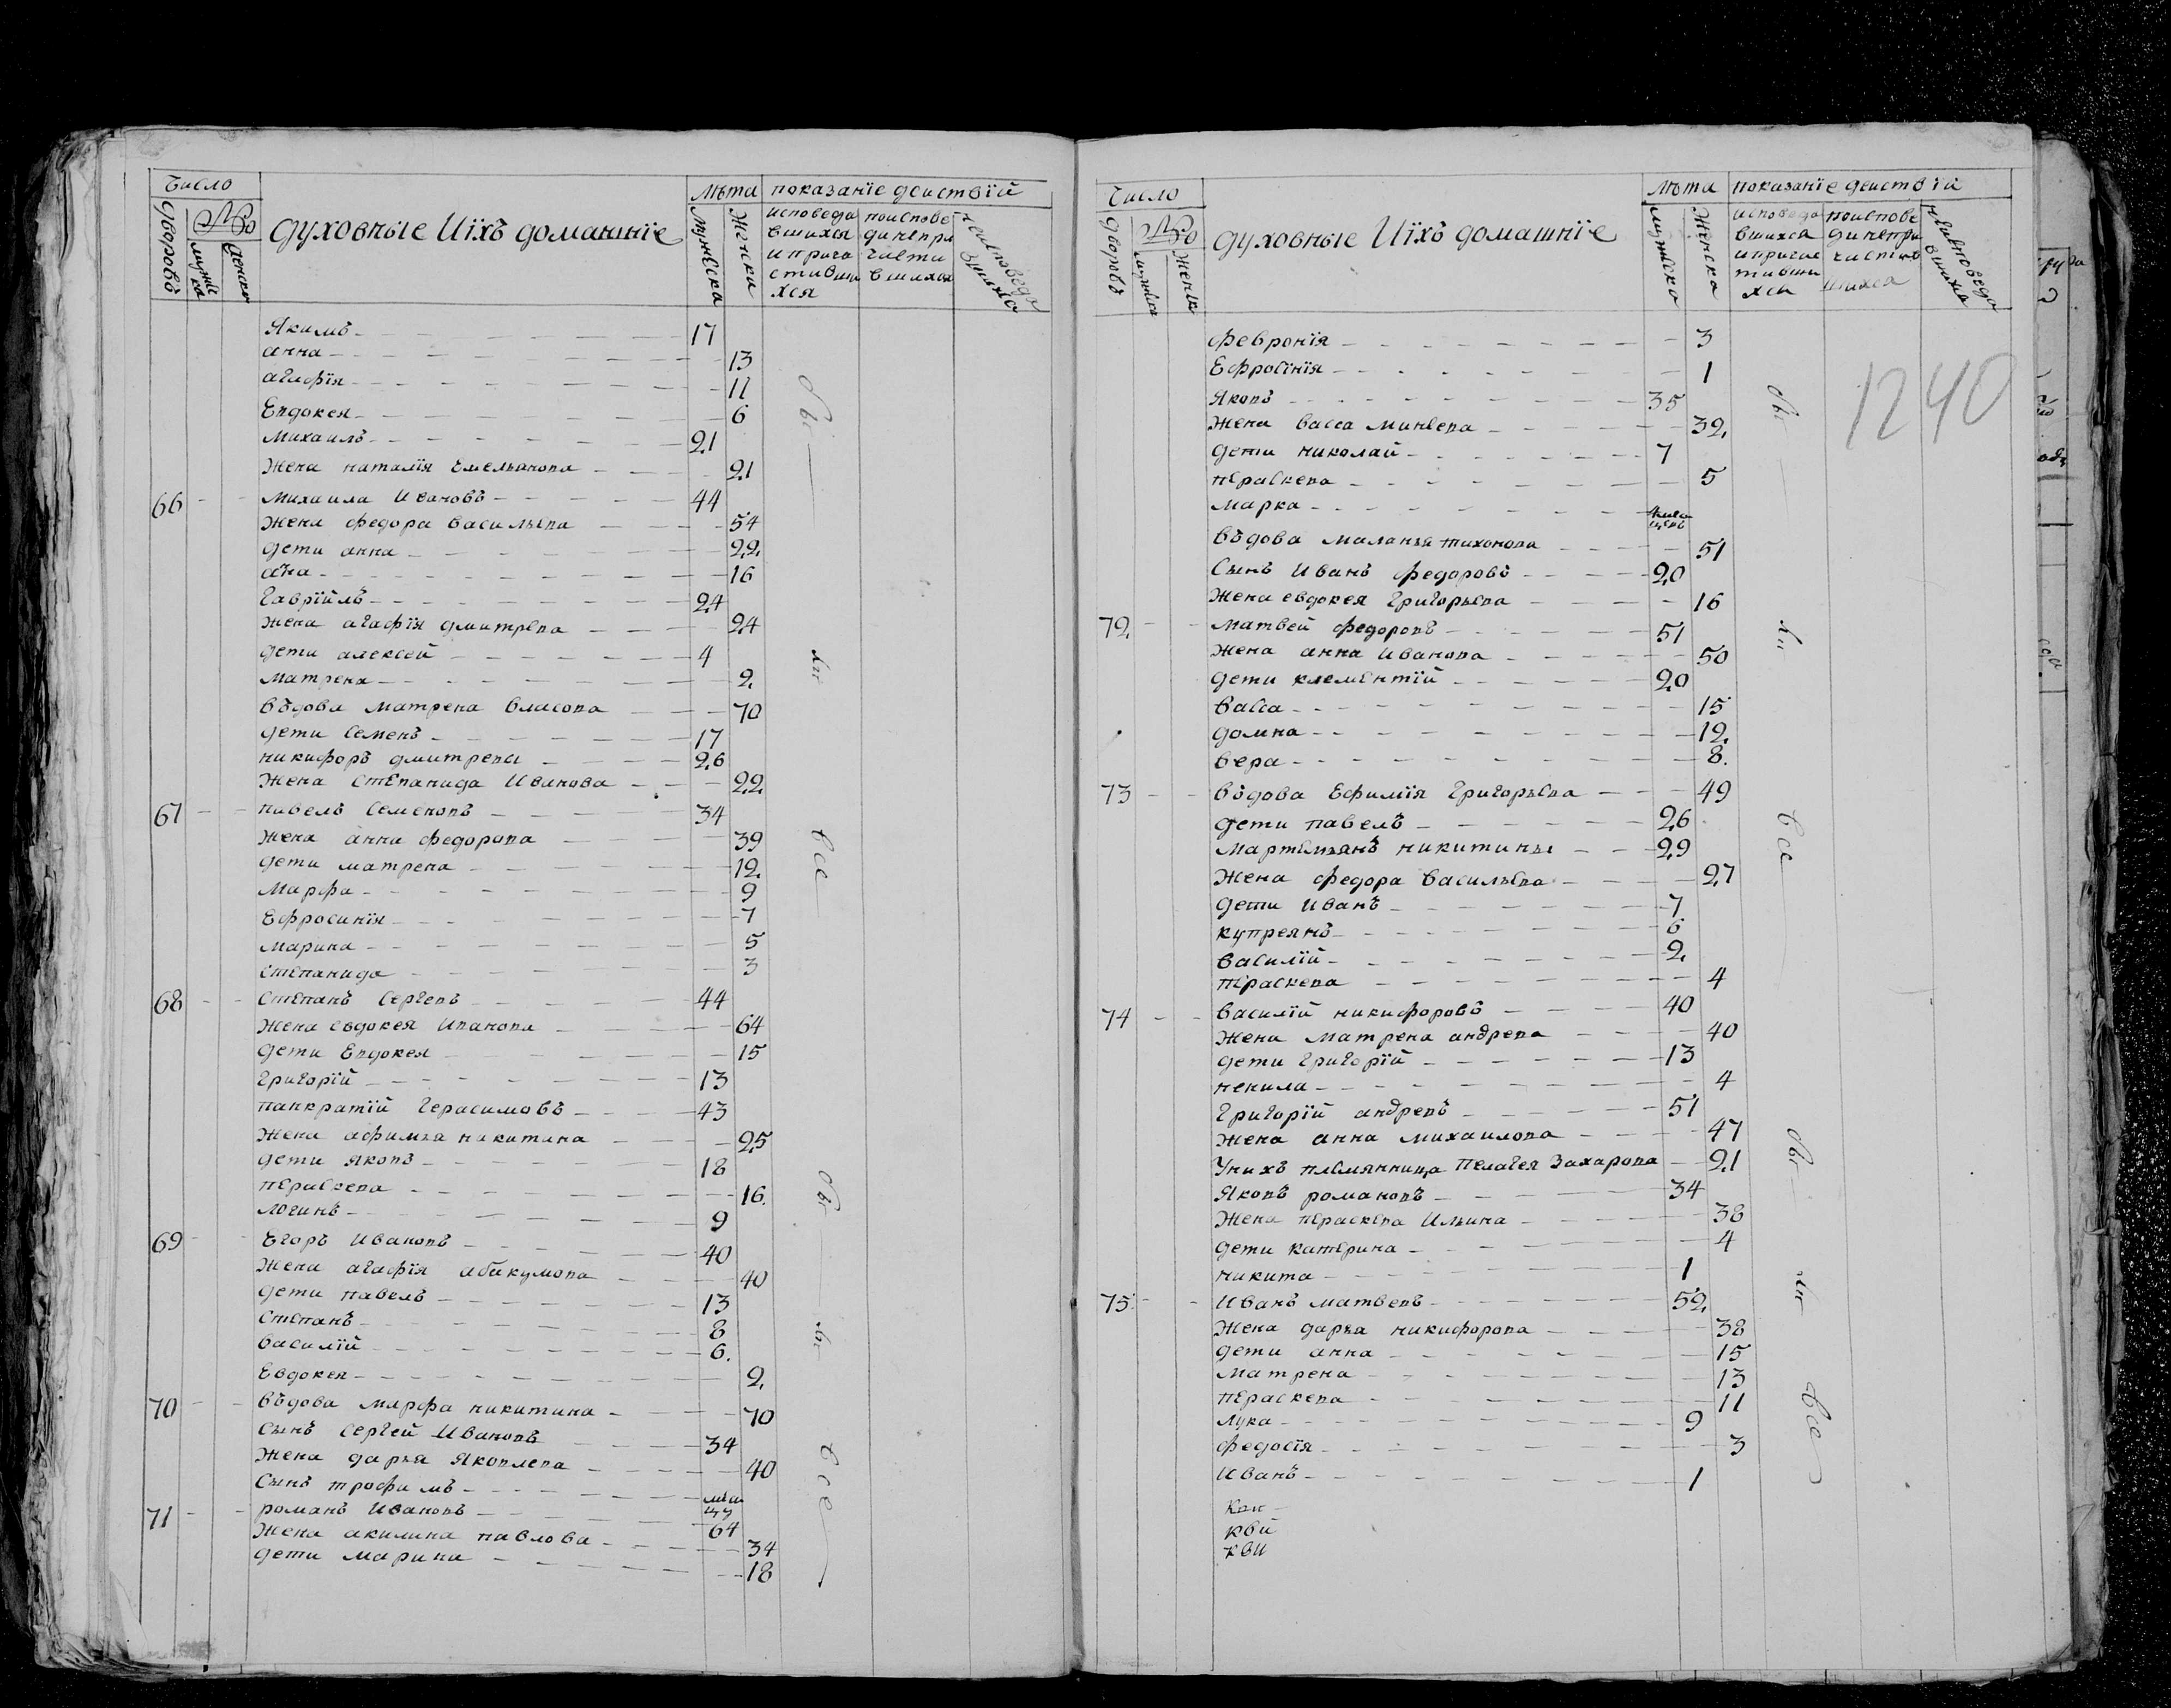 Число
№
дворовъ
мужеска
женска
духовные Иїхъ домашнїе
лѣта
мужеска
женска
показанїе деиствїй
исповеда
вшихся
и прича
стивши
хся
поиспове
динепри
части
вшихся
неисповеда
вшихся
Якимъ 17
анна 13
агафїя 11
Евдокея 6
михаилъ 21
жена наталїя Емельянова 21
66 михаила Ивановъ 44
жена федора васильева 54
дети анна 22
анa 16
гаврїилъ 24
жена агафїя дмитрева 24
дети алексей 4
матрена 2
въдова матрена власова 70
дети семенъ 17
никифоръ дмитревы 26
жена степанида Иванова 22
67 павелъ семеновъ 34
жена анна федорова 39
дети матрена 12
марфа 9
Ефросинїя 7
марина 5
степанида 3
68 степанъ сергевъ 44
жена евдокея Иванова 64
дети Евдокея 15
григорїй 13
панкратїй герасимовъ 43
жена афимья никитина 25
дети яковъ 18
параскева 16
логинъ 9
69 Егоръ Ивановъ 40
жена агафїя абакумова 40
дети павелъ 13
степанъ 8
василїй 6
Евдокея 2
70 въдова марфа никитина 70
сынъ сергей Ивановъ 34
жена дарья Яковлева 40
сынъ трофимъ
71 романъ Ивановъ 64
жена акилина павлова 34
дети марина 18
все
Число
№
дворовъ
мужеска
женска
духовные Иїхъ домашнїе
лѣта
мужеска
женска
показанїе деиствїй
исповеда
вшихся
и причас
тивши
хся
поиспове
динепри
частив
шихся
неисповеда
вшихся
1240
февронїя 3
Ефросїнїя 1
Яковъ 35
жена васса минеева 32
дети николай 7
параскева 5
марка
въдова маланья тихонова 51
сынъ Иванъ федоровъ 20
жена евдокея григорьева 16
72 матвей федоровъ 51
жена анна Иванова 50
дети клементїй 20
васса 15
домна 12
вера 8
73 въдова Ефимїя григорьева 49
дети павелъ 26
мартемьянъ никитины 29
жена федора васильева 27
дети Иванъ 7
купреянъ 6
василїй 2
параскева 4
74 василїй никифоровъ 40
жена матрена андрева 40
дети григорїй 13
ненила 4
григорїй андревъ 51
жена анна михаилова 47
Унихъ племянница Пелагея Захарова 21
Яковъ романовъ 34
жена параскева Ильина 38
дети катерина 4
никита 1
75 Иванъ матвевъ 52
жена дарья никифорова 38
дети анна 15
матрена 13
параскева 11
лука 9
федосїя 3
Иванъ 1
все
все